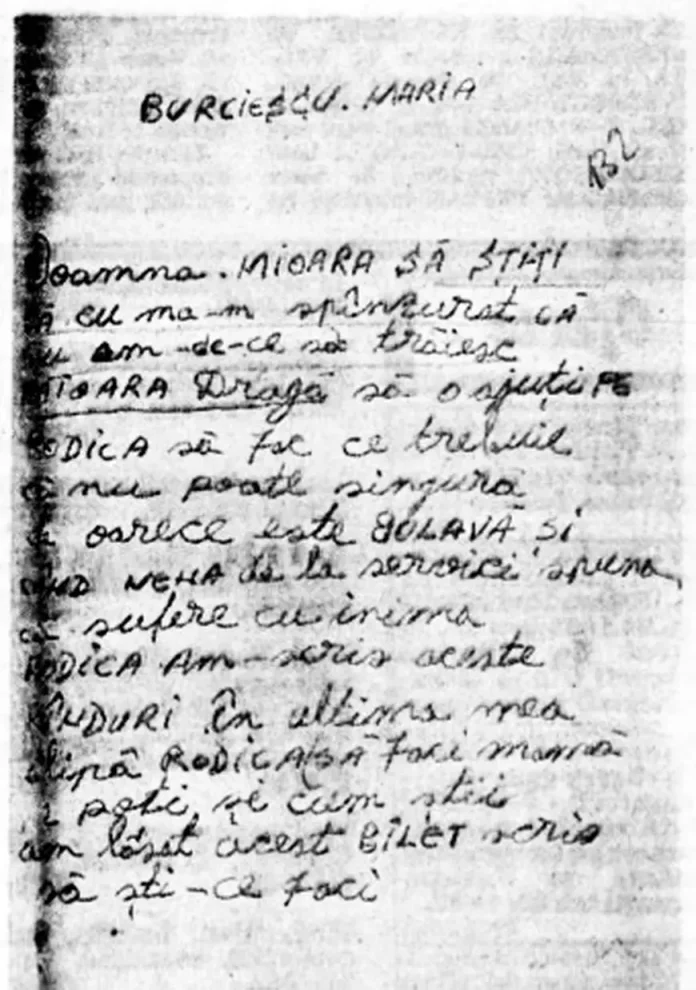 BURCIESCU. MARIA
132
Doamna. MIOARA SĂ ȘTIȚI
că eu ma-m spînzurat CĂ
nu am de-ce să trăiesc
MIOARA Dragă să o ajuți PE
RODICA să fac ce trebuie
nu poate singura
oarece este BOLAVĂ SI
de la servici spuna
că sufere cu inima
RODICA AM-scris aceste
RÎNDURI în ultima mea
clipă RODICA SĂ faci mamă
poti și cum stii
am lăsat acest BILET scris
să ști-ce faci